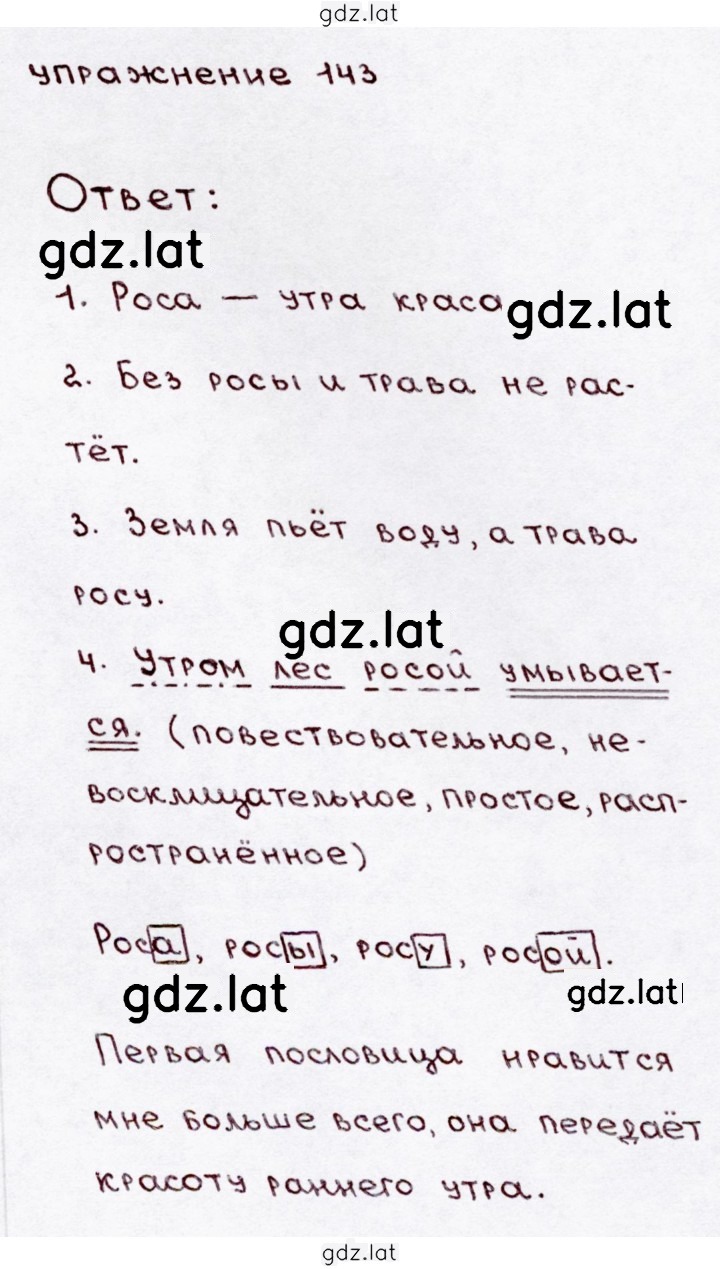 gdz.lat
упражнение 143
Ответ:
gdz.lat
1. Роса — утра краса
gdz.lat
2. Без росы и трава не рас-
тёт.
3. Земля пьёт воду, а трава
росу.
gdz.lat
4. Утром лес росой умывает-
ся. (повествовательное, не-
восклицательное, простое, расп-
ространённое)
Роса, росы, росу, росой.
gdz.lat
gdz.lat
Первая пословица нравится
мне больше всего, она передаёт
красоту раннего утра.
gdz.lat